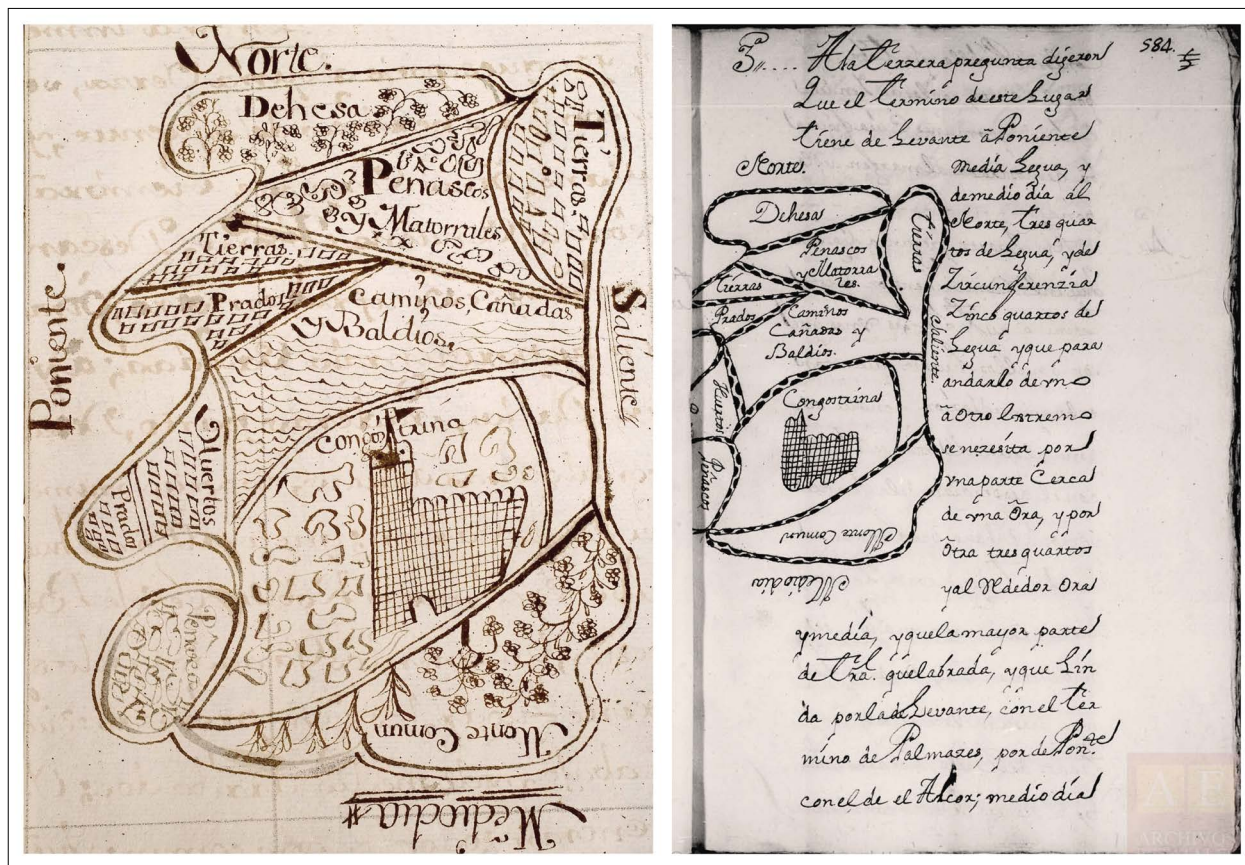 Norte.
Dehesa
Tierras.
Peñascos
y Matorrales
Tierras.
Prados
Caminos, Cañadas
y Baldios.
Poniente.
Saliente
Huertos
Prados
Congostrina
Peñascos
Monte Comun
Mediodia
584.
3ª.... A la terzera pregunta dijeron
Que el termino de este Lugar
tiene de Levante â Poniente
media Legua, y
de medio dia al
Norte, tres quar
tos de Legua, y de
Zircunferenzia
Zinco quartos de
Legua y que para
andarlo de vno
â Otro Extremo
se nezesita por
vna parte Cerca
de vna Ôra, y por
ôtra tres quartos
y al Rededor Ora
y media, y que la mayor parte
de trrª. quelabrada, y que Lin
da por la de Levante, con el ter
mino de Palmazes, por de Pon.te
con el de el Alcor; medio dia
Norte.
Dehesa
Tierras
Peñascos
y Matorra
les.
Tierras
Prados
Caminos
Cañadas y
Baldios.
Saliente.
Huertos
Congostrina
Peñascos
Monte Comun
Mediodia
AE
ARCHIVOS